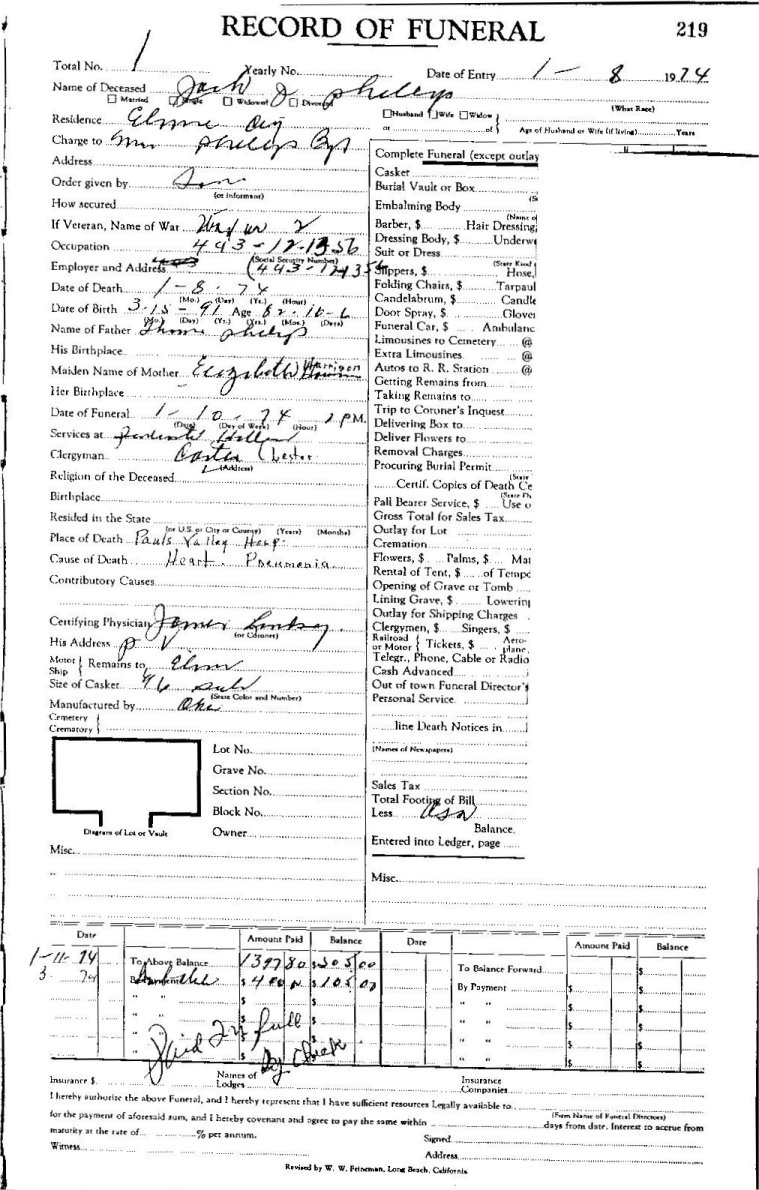 RECORD OF FUNERAL 219
Total No. 1 Yearly No. Date of Entry 1 - 8 1974
Name of Deceased Jack J Phelips
Married Single Widowed Divorced (What Race)
Residence Elmore City Husband Wife Widow
or of Age of Husband or Wife (if living) Years
Charge to Mrs Phelips
Complete Funeral (except outlay
Address
Casket
Order given by Son
(or informant)
Burial Vault or Box
How secured
Embalming Body
(Name o
If Veteran, Name of War World War 2
Barber, $ Hair Dressing
Dressing Body, $ Underwe
Occupation 443-12-1356
(Social Security Number)
Suit or Dress
(State Kind
Employer and Address 443-12-1356
Slippers, $ Hose,
Date of Death 1-8-74
(Mo.) (Day) (Yr.) (Hour)
Folding Chairs, $ Tarpaul
Candelabrum, $ Candle
Date of Birth 3-15-91 Age 82-10-6
(Mo.) (Day) (Yr.) (Yrs.) (Mos.) (Days)
Door Spray, $ Glove
Name of Father Thomas Phelips
Funeral Car, $ Ambulanc
Limousines to Cemetery @
His Birthplace
Extra Limousines @
Maiden Name of Mother Elizabeth Harrison
Autos to R. R. Station @
Getting Remains from
Her Birthplace
Taking Remains to
Date of Funeral 1-10-74 2 P.M.
(Date) (Day of Week) (Hour)
Trip to Coroner's Inquest
Delivering Box to
Services at
Deliver Flowers to
Clergyman Carter Chester
(Address)
Removal Charges
Procuring Burial Permit
(State
Religion of the Deceased
Certif. Copies of Death Ce
Birthplace
Pall Bearer Service, $ Use o
Resided in the State
(or U.S. or City or County) (Years) (Months)
Gross Total for Sales Tax
Outlay for Lot
Place of Death Pauls Valley Hosp.
Cremation
Cause of Death Heart. Pneumonia
Flowers, $ Palms, $ Mat
Rental of Tent, $ of Tempo
Contributory Causes
Opening of Grave or Tomb
Lining Grave, $ Lowering
Outlay for Shipping Charges
Certifying Physician James Lindsay
(or Coroner)
Clergymen, $ Singers, $
His Address P V
Railroad or Motor Tickets, $ Aero-plane,
Motor Ship Remains to Elmore
Telegr., Phone, Cable or Radio
Cash Advanced
Size of Casket
(State Color and Number)
Out of town Funeral Director's
Manufactured by Oka
Personal Service
Cemetery
Crematory
line Death Notices in
Lot No.
(Names of Newspapers)
Grave No.
Section No.
Sales Tax
Total Footing of Bill
Block No.
Less
Diagram of Lot or Vault
Owner
Balance
Entered into Ledger, page
Misc.
Misc.
Date Amount Paid Balance Date Amount Paid Balance
1-11-74 To Above Balance 1397 80 $505 00 To Balance Forward $
3 74 By Payment $400 00 $105 00 By Payment $ $
" " $ $ " " $ $
" " $ $ " " $ $
" " $ $ " " $ $
" " $ $ " " $ $
Paid In full
By Check
Insurance $ Names of Lodges Insurance Companies
I hereby authorize the above Funeral, and I hereby represent that I have sufficient resources Legally available to
(Firm Name of Funeral Directors)
for the payment of aforesaid sum, and I hereby covenant and agree to pay the same within days from date. Interest to accrue from
maturity at the rate of % per annum. Signed
Witness Address
Revised by W. W. Feineman, Long Beach, California